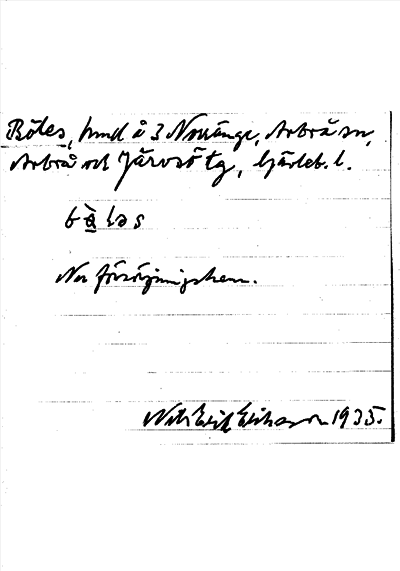 Böles, hmd å 3 Norränge, Arbrå sn,
Arbrå och Järvsö tg, Gävleb. l.
Nu försörjningshem.
Nils Erik Eriksson 1935.